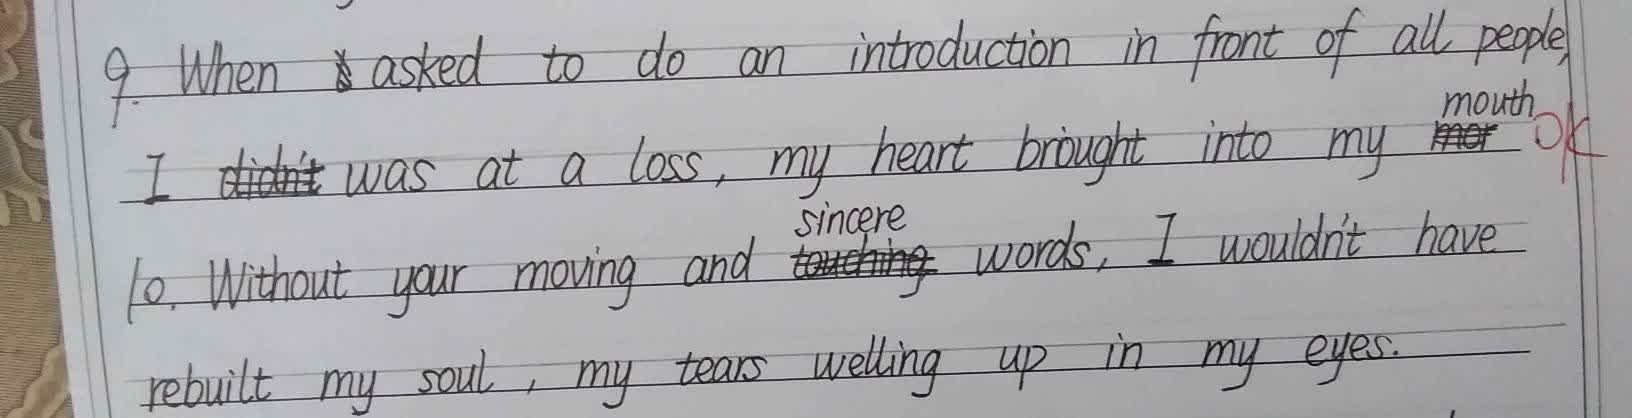 9. When asked to do an introduction in front of all people,
I didn't was at a loss, my heart brought into my mouth OK
10. Without your moving and touching sincere words, I wouldn't have
rebuilt my soul, my tears welling up in my eyes.